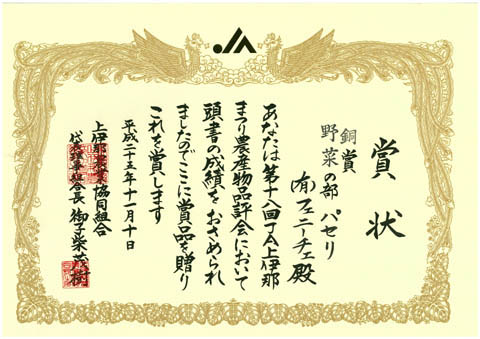 賞状
銅賞
野菜の部 パセリ
(有)フェニーチェ殿
あなたは第十八回JA上伊那
まつり農産物品評会において
頭書の成績をおさめられ
ましたのでここに賞品を贈り
これを賞します
平成二十五年十一月十日
上伊那農業協同組合
代表理事組合長 御子柴茂樹